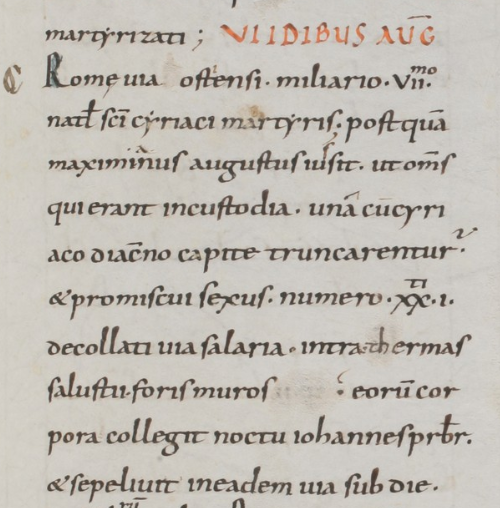 martyrizati; VI IDIBUS AUḠ
C Romę uia ostensi. miliario. VII.mo
natł sc̄i cyriaci martyris; postquā
maximinus augustus iussit. ut om̄s
qui erant incustodia. unā cū cyri
aco diac̄no capite truncarentur.
& promiscui sexus. numero. XX.ti I.
decollati uia salaria. intra thermas
salustii. foris muros eorū cor
pora collegit noctu iohannes prb̄r.
& sepeliuit ineadem uia sub die.